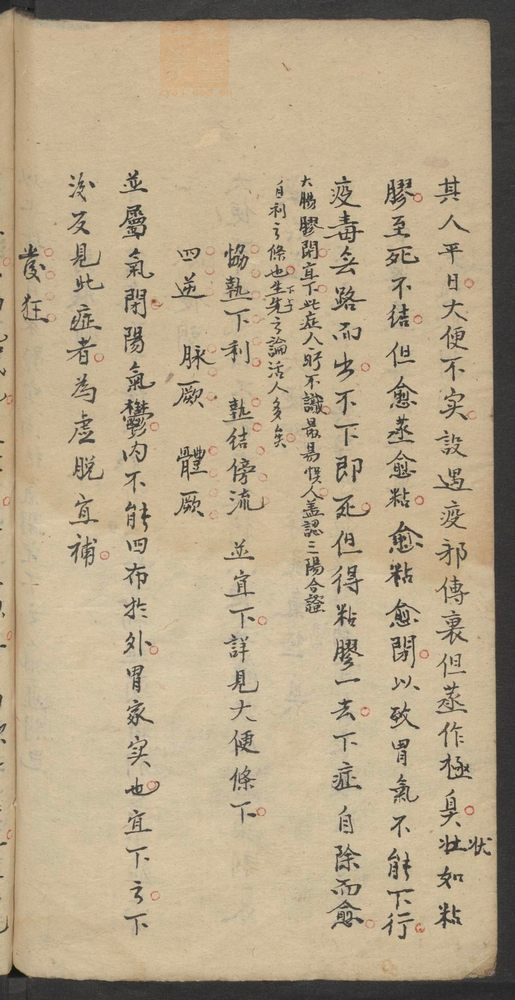 其人平日大便不实設遇疫邪傳裏但蒸作極臭壯如粘
状
膠至死不结但愈蒸愈粘愈粘愈閉以致胃氣不能下行
疫毒無路而出不下即死但得粘膠一去下症自除而愈
大腸膠閉宜下此症人所不識最易悞人盖認三陽合證
自利之條也先生之論活人多矣
恊熱下利 熱结傍流 並宜下詳見大便條下
四逆 脉厥 體厥
並屬氣閉陽氣鬱内不能四布扵外胃家实也宜下之下
後反見此症者為虛脱宜補
發狂